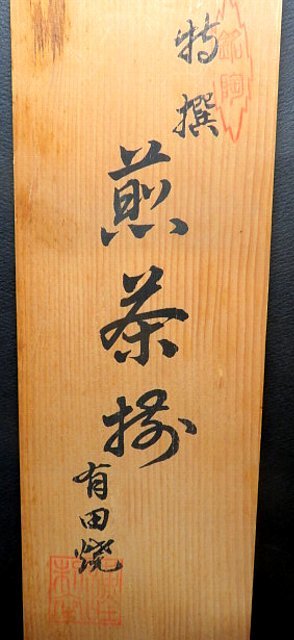 特撰
煎茶揃
有田焼